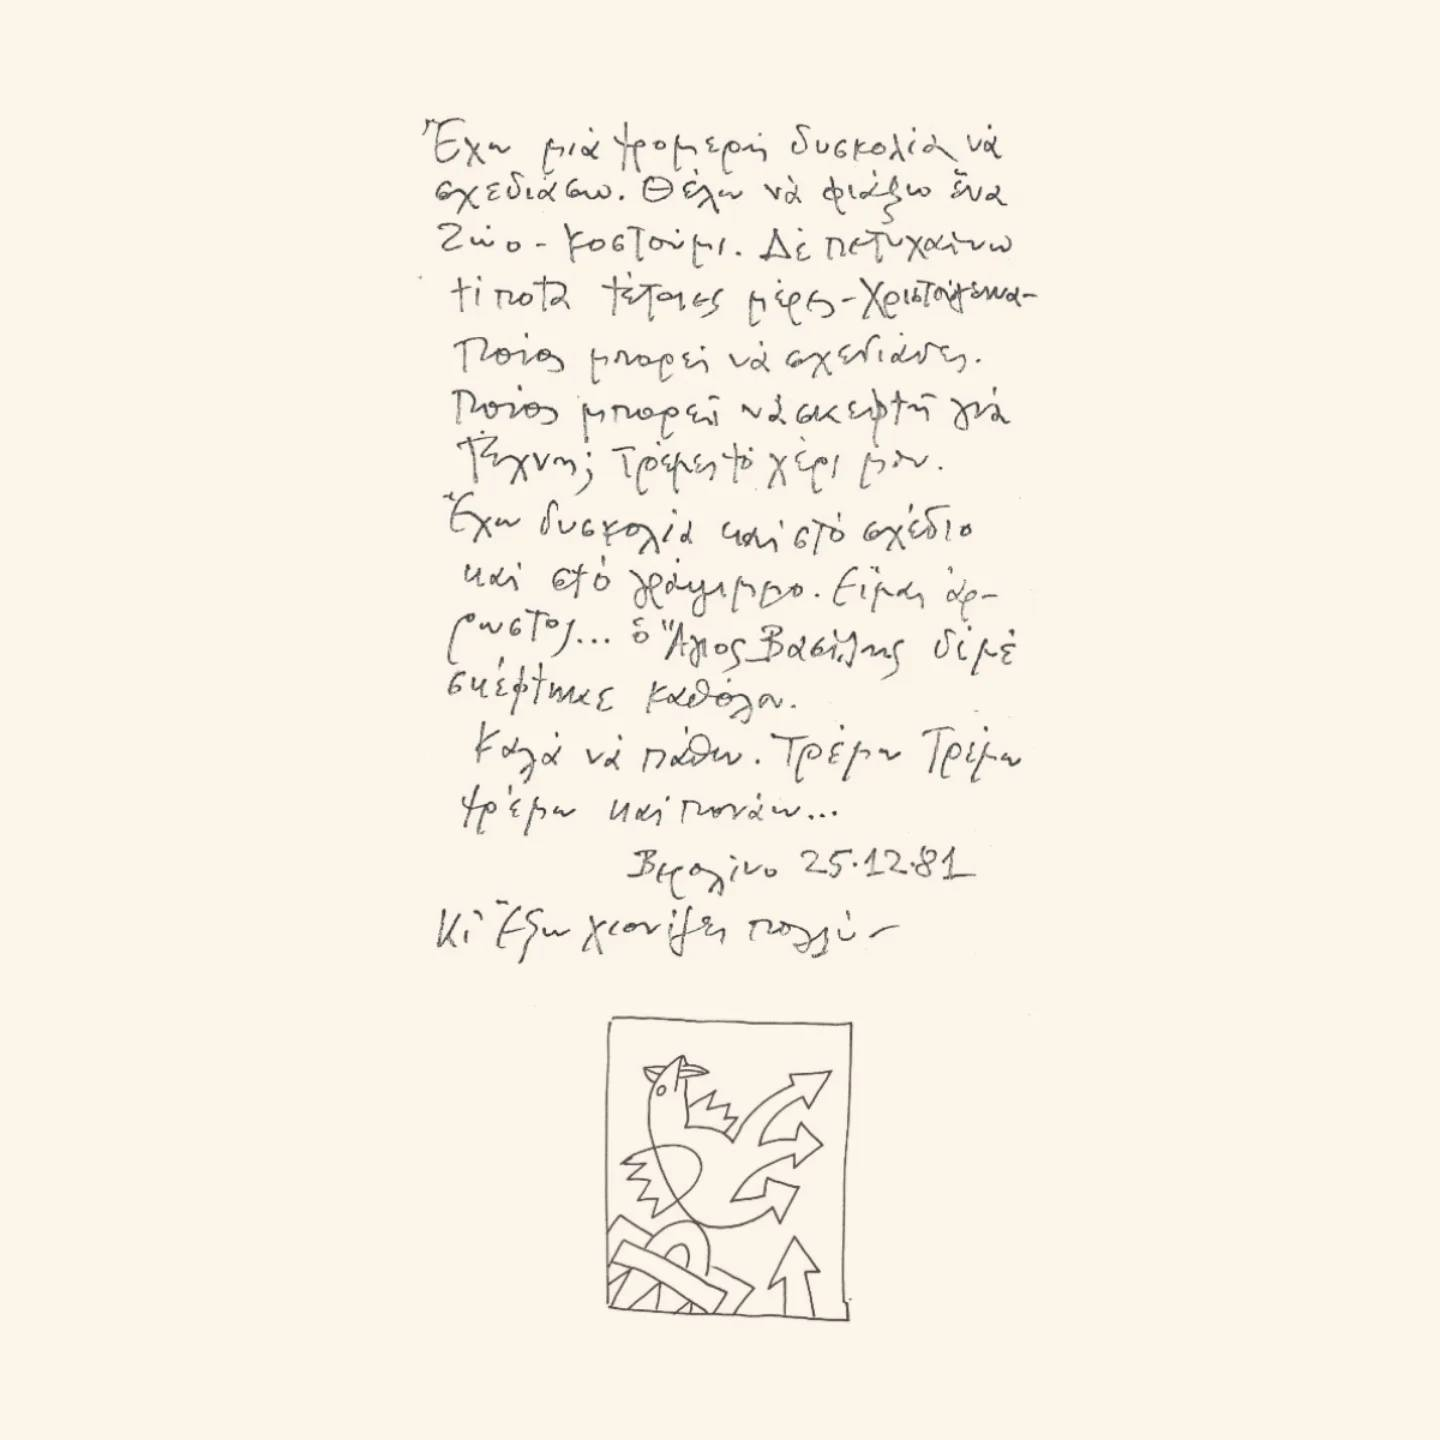 Ἔχω μιὰ τρομερὴ δυσκολία νὰ
σχεδιάσω. Θέλω νὰ φτιάξω ἕνα
Ζῶο - κοστούμι. Δὲ πετυχαίνω
τίποτα τέτοιες μέρες - Χριστούγεννα -
Ποιὸς μπορεῖ νὰ σχεδιάσει.
Ποιὸς μπορεῖ νὰ σκεφτῆ γιὰ
Τέχνη; Τρέμει τὸ χέρι μου.
Ἔχω δυσκολία καὶ στὸ σχέδιο
καὶ στὸ γράψιμο. Εἶμαι ἄρ-
ρωστος... ὁ Ἅγιος Βασίλης δὲ μὲ
σκέφτηκε καθόλου.
Καλὰ νὰ πάθω. Τρέμω Τρέμω
τρέμω καὶ πονάω...
Βερολίνο 25.12.81
Κι ἔξω χιονίζει πολύ -